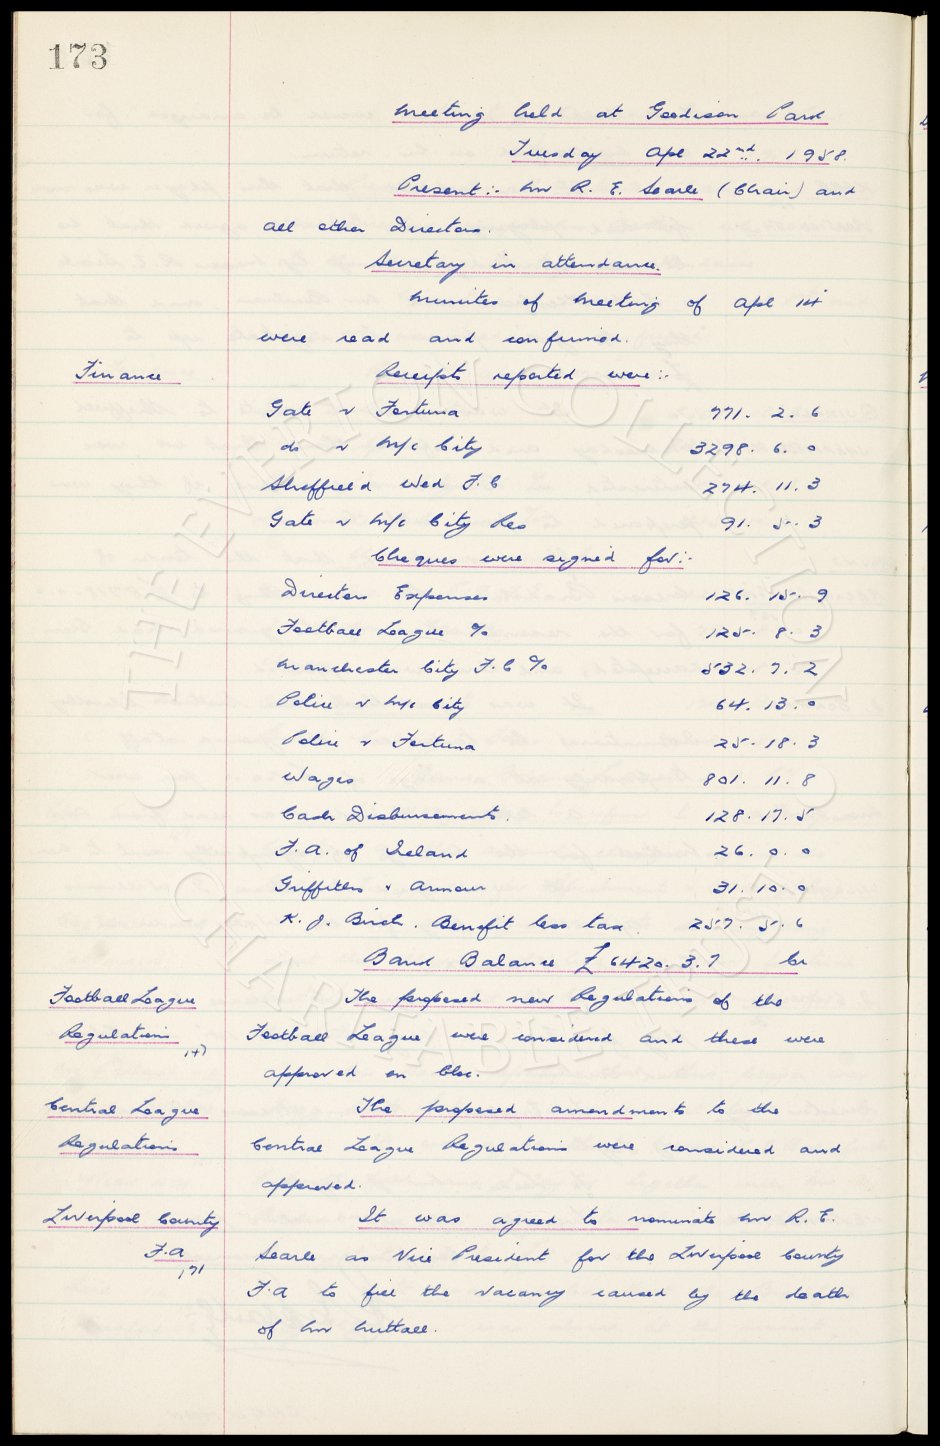 173
Meeting held at Goodison Park
Tuesday Apl 22nd. 1958.
Present:- Mr R. E. Searle (Chair) and
all other Directors.
Secretary in attendance.
Minutes of Meeting of Apl 14
were read and confirmed.
Finance Receipts reported were:-
Gate v Fortuna 771. 2. 6
do v M/c City 3298. 6. 0
Sheffield Wed F.C 274. 11. 3
Gate v M/c City Res 91. 5. 3
Cheques were signed for:-
Directors Expenses 126. 15. 9
Football League % 125. 8. 3
Manchester City F.C % 532. 7. 2
Police v M/c City 64. 13. 0
Police v Fortuna 25. 18. 3
Wages 801. 11. 8
Cash Disbursements. 128. 17. 5
F.A. of Ireland 26. 0. 0
Griffiths & Armour 31. 10. 0
K. J. Birch. Benefit less tax. 257. 5. 6
Bank Balance £6420. 3. 7 Cr
Football League The proposed new Regulations of the
Regulations Football League were considered and these were
147
approved en bloc.
Central League The proposed amendments to the
Regulations Central League Regulations were considered and
approved.
Liverpool County It was agreed to nominate Mr R. E.
F.A Searle as Vice President for the Liverpool County
171
F.A to fill the vacancy caused by the death
of Mr Nuttall.
THE EVERTON COLLECTION
CHARITABLE TRUST